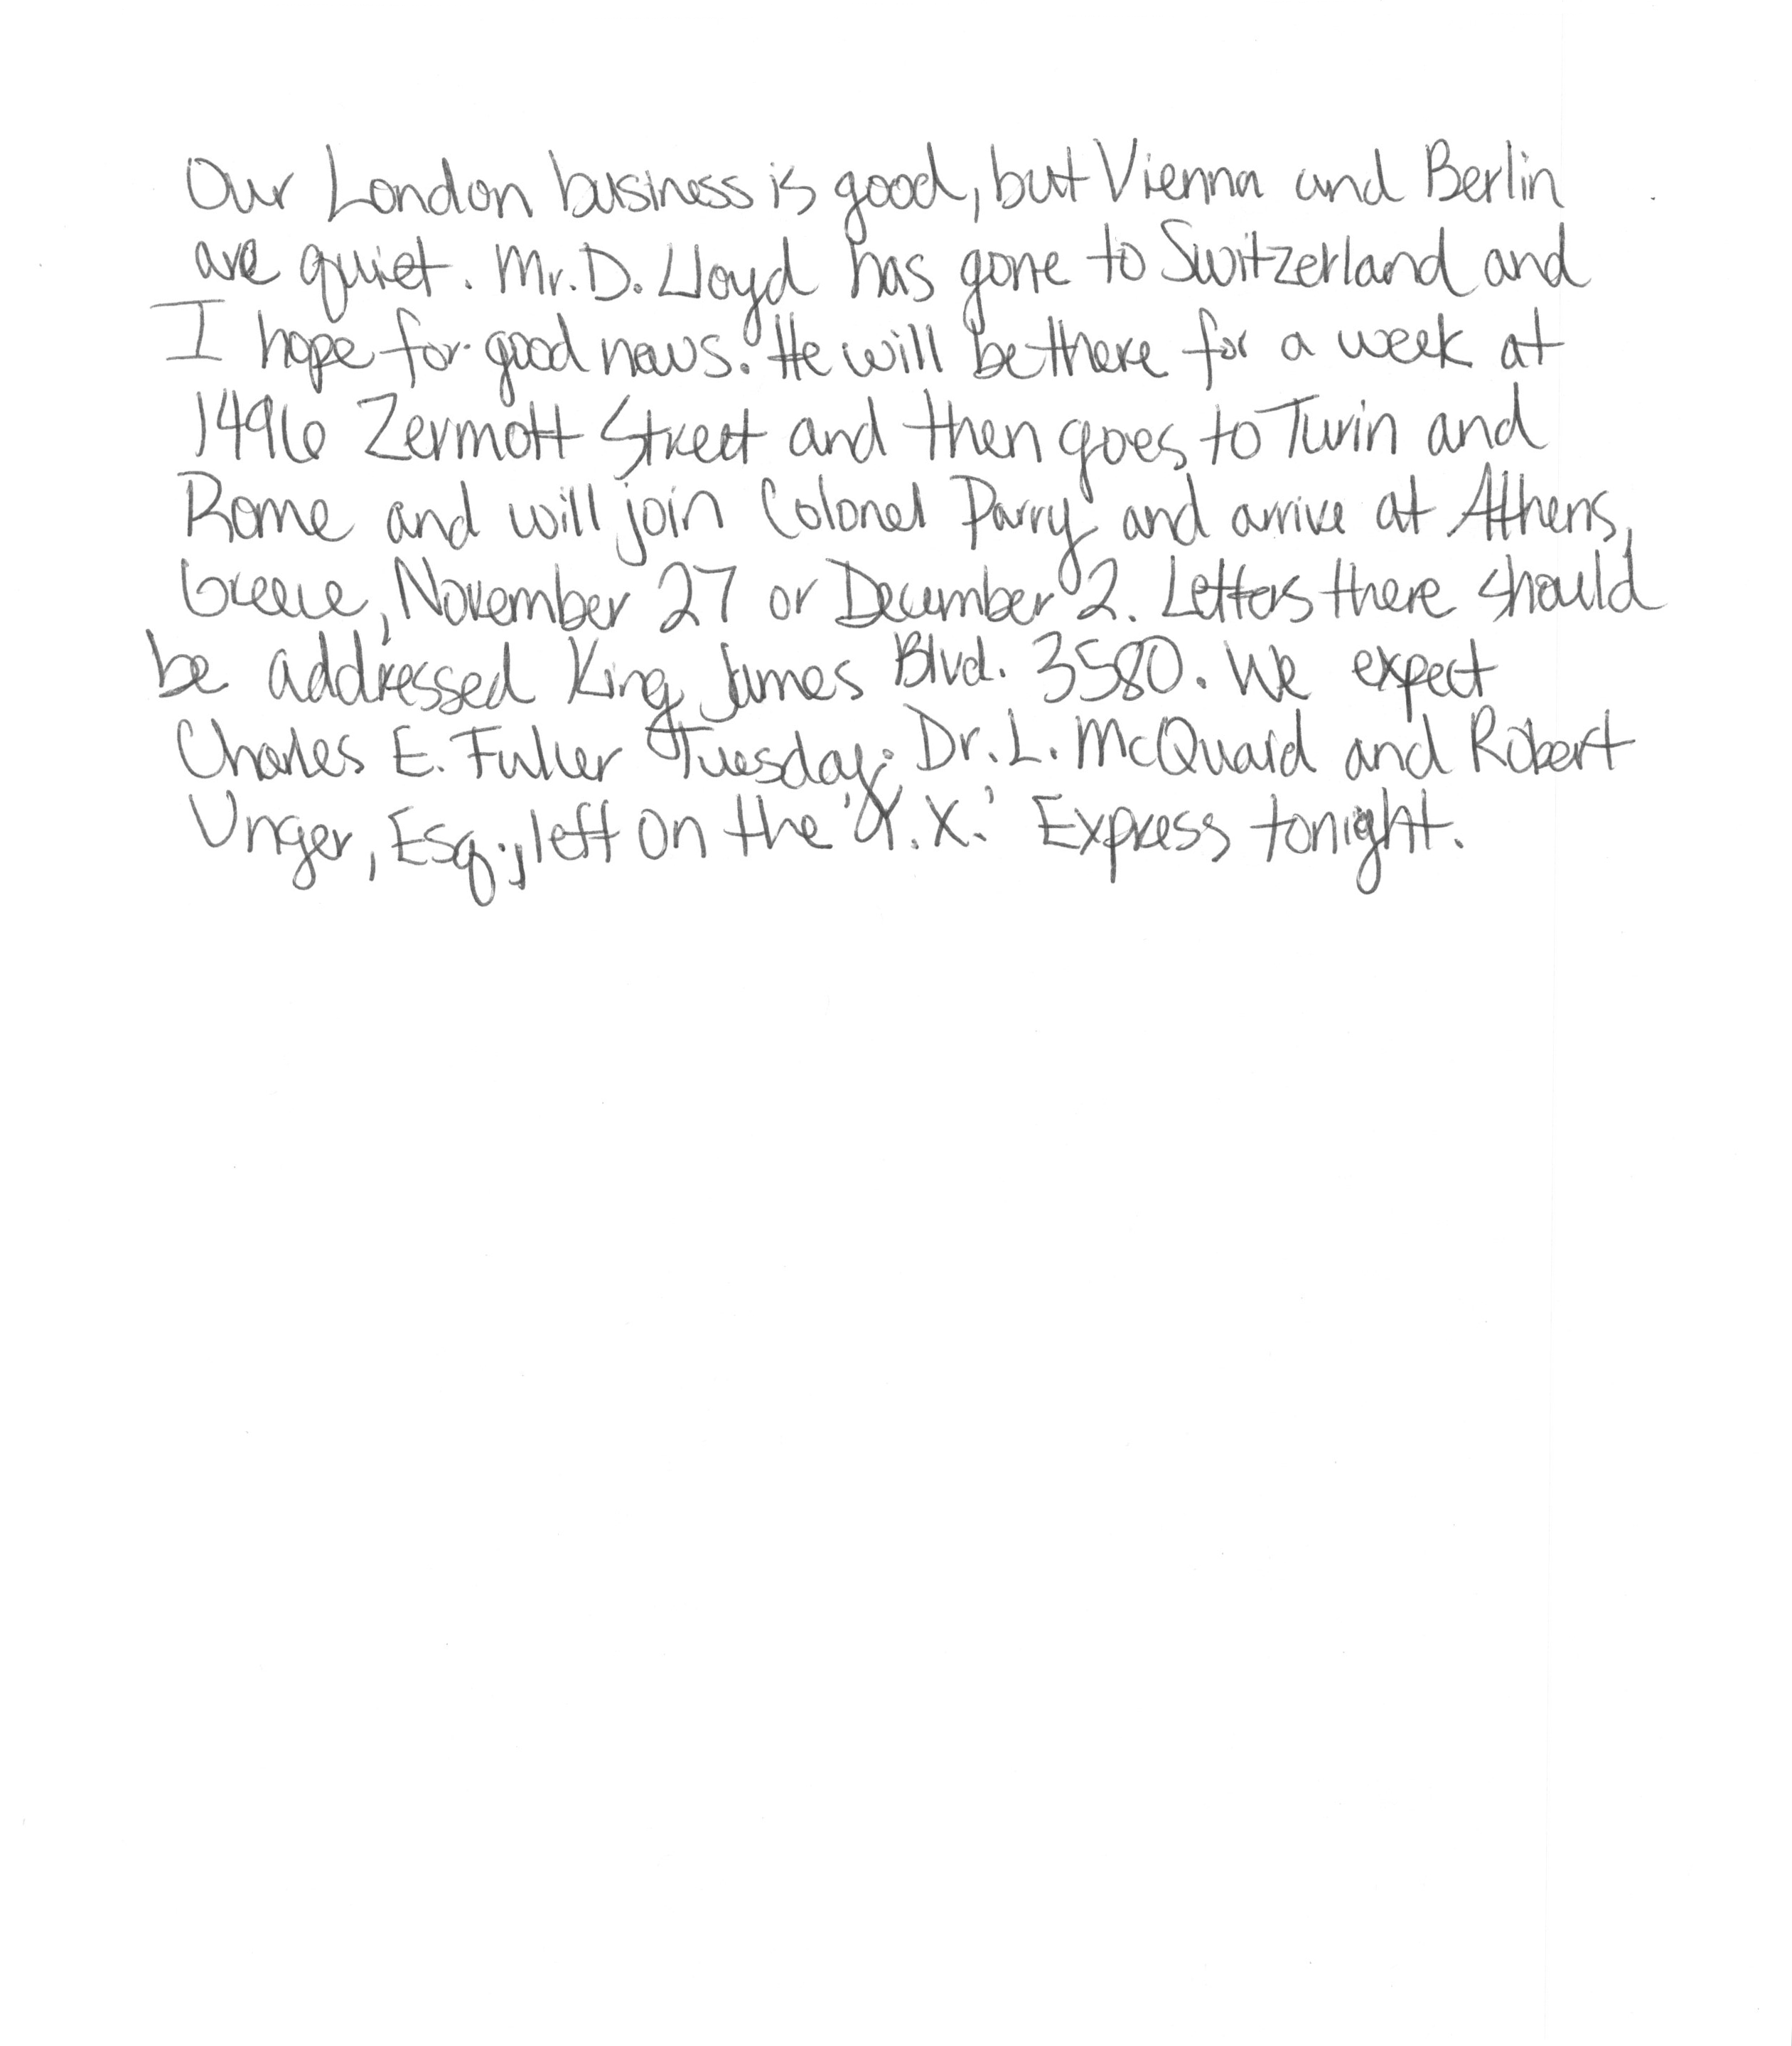 Our London business is good, but Vienna and Berlin
are quiet. Mr. D. Lloyd has gone to Switzerland and
I hope for good news. He will be there for a week at
1496 Zermott Street and then goes to Turin and
Rome and will join Colonel Parry and arrive at Athens,
Greece, November 27 or December 2. Letters there should
be addressed King James Blvd. 3580. We expect
Charles E. Fuller Tuesday. Dr. L. McQuaid and Robert
Unger, Esq., left on the 'Y.X.' Express tonight.